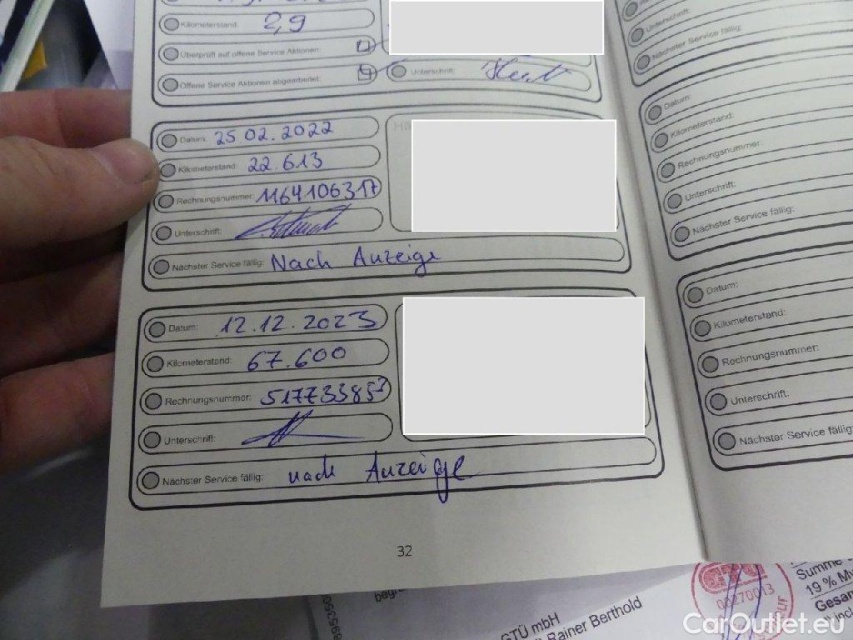 Kilometerstand: 2,9
Überprüft auf offene Service Aktionen:
Offene Service Aktionen abgearbeitet:
Unterschrift:
Datum: 25 02.2022
Kilometerstand: 22.613
Rechnungsnummer: 1164106317
Unterschrift:
Nächster Service fällig: Nach Anzeige
Datum: 12.12.2023
Kilometerstand: 67.600
Rechnungsnummer: 517733853
Unterschrift:
Nächster Service fällig: nach Anzeige
32
Unterschrift:
Nächster Service fällig:
Datum:
Kilometerstand:
Rechnungsnummer:
Unterschrift:
Nächster Service fällig:
Datum:
Kilometerstand:
Rechnungsnummer:
Unterschrift:
Nächster Service fällig:
GTÜ mbH
Rainer Berthold
00270013
Summe
19 % M
Gesam
CarOutlet.eu